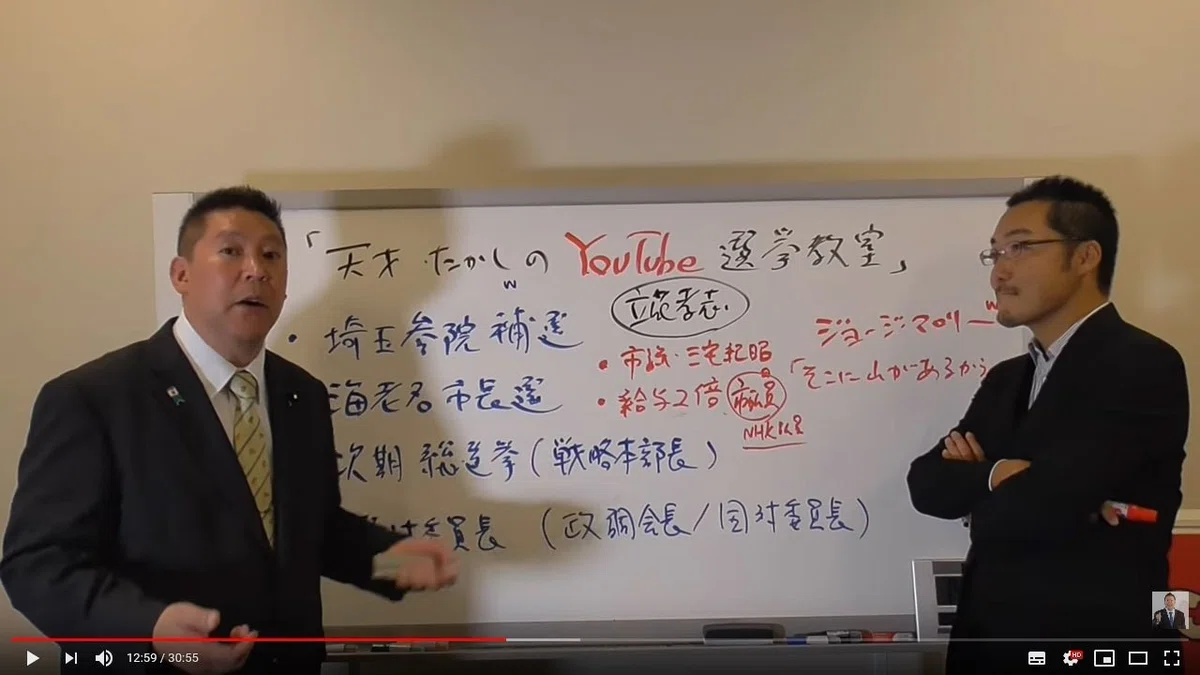 「天才 たかしの YouTube 選挙教室」
w
立花孝志
・埼玉参院補選
・市議・三宅紀昭
ジョージマロリー w
海老名市長選
・給与2倍 市議員
「そこに山があるから
NHK職員
次期 総選挙(戦略本部長)
委員長 (政調会長/国対委員長)
12:59 / 30:55
HD